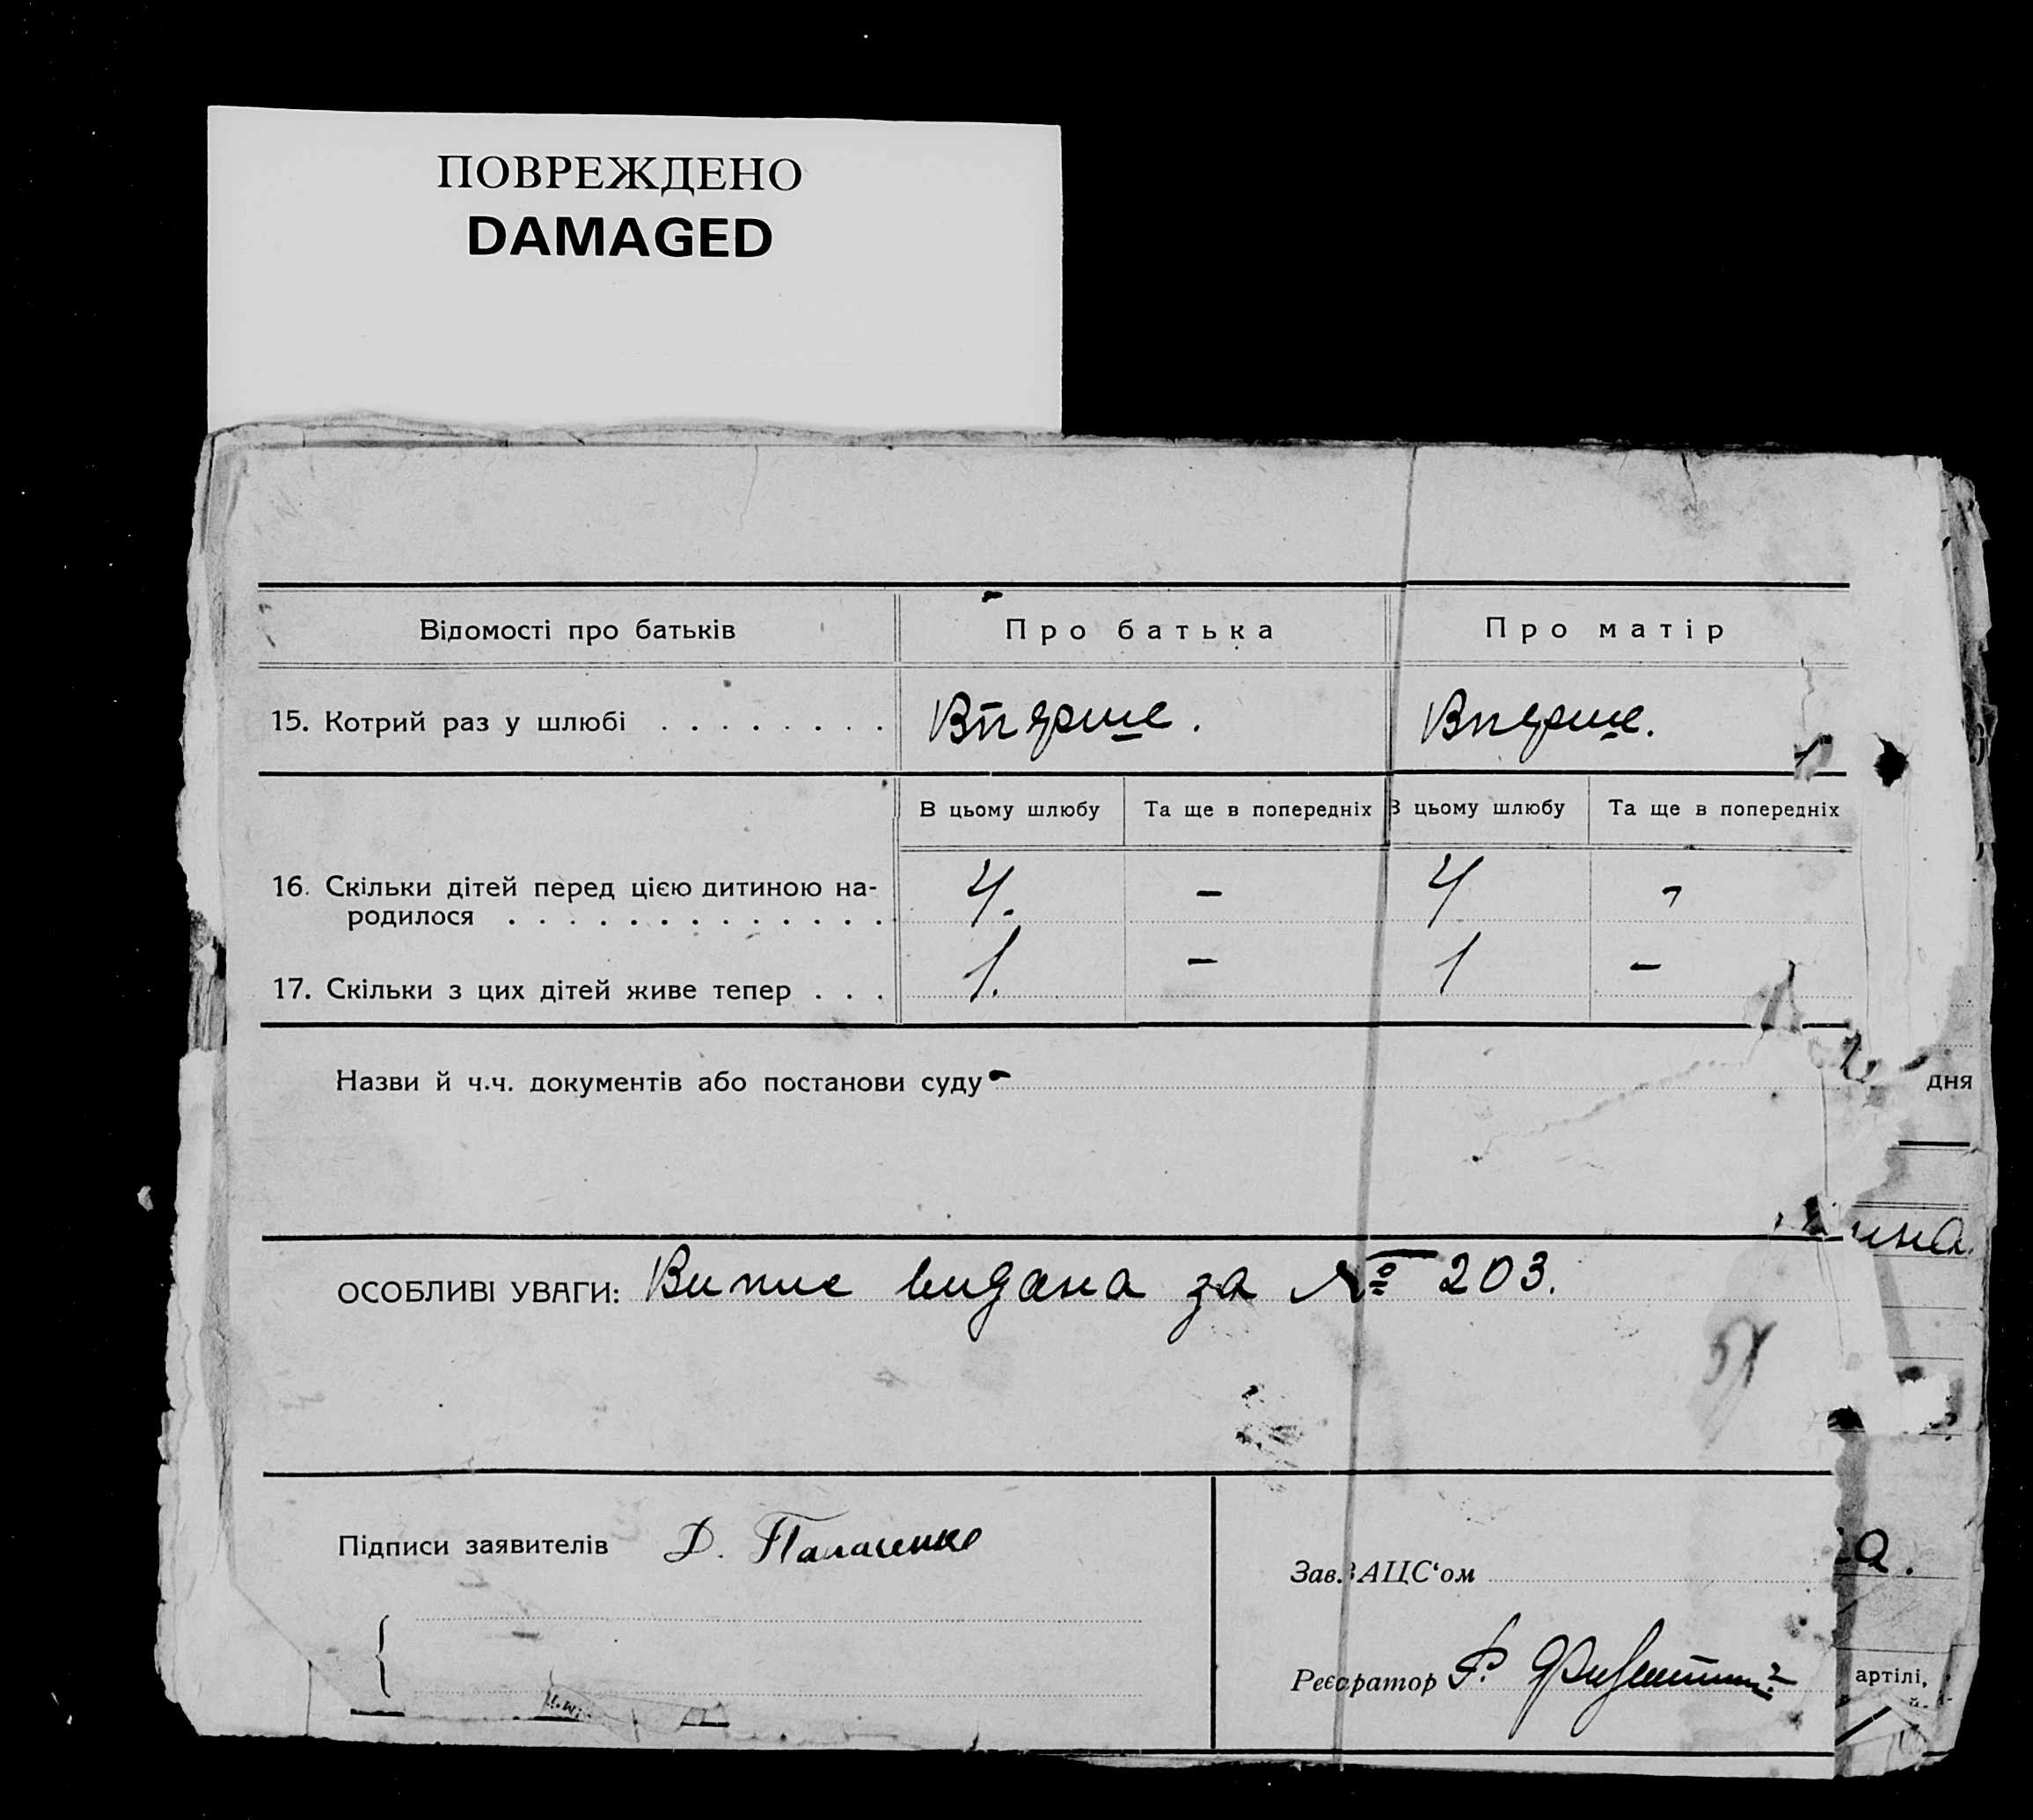 ПОВРЕЖДЕНО
DAMAGED
Відомості про батьків
Про батька
Про матір
15. Котрий раз у шлюбі . . . . . . . .
Вперше.
Вперше.
В цьому шлюбу
Та ще в попередніх
В цьому шлюбу
Та ще в попередніх
16. Скільки дітей перед цією дитиною на-
родилося . . . . . . . . . . . . .
4.
-
4
-
17. Скільки з цих дітей живе тепер . . .
1.
-
1
-
Назви й ч.ч. документів або постанови суду -
дня
ина
ОСОБЛИВІ УВАГИ: Випис видана за № 203.
Підписи заявителів Д.
Зав. ЗАЦС‘ом
а.
Реєстратор
артілі,